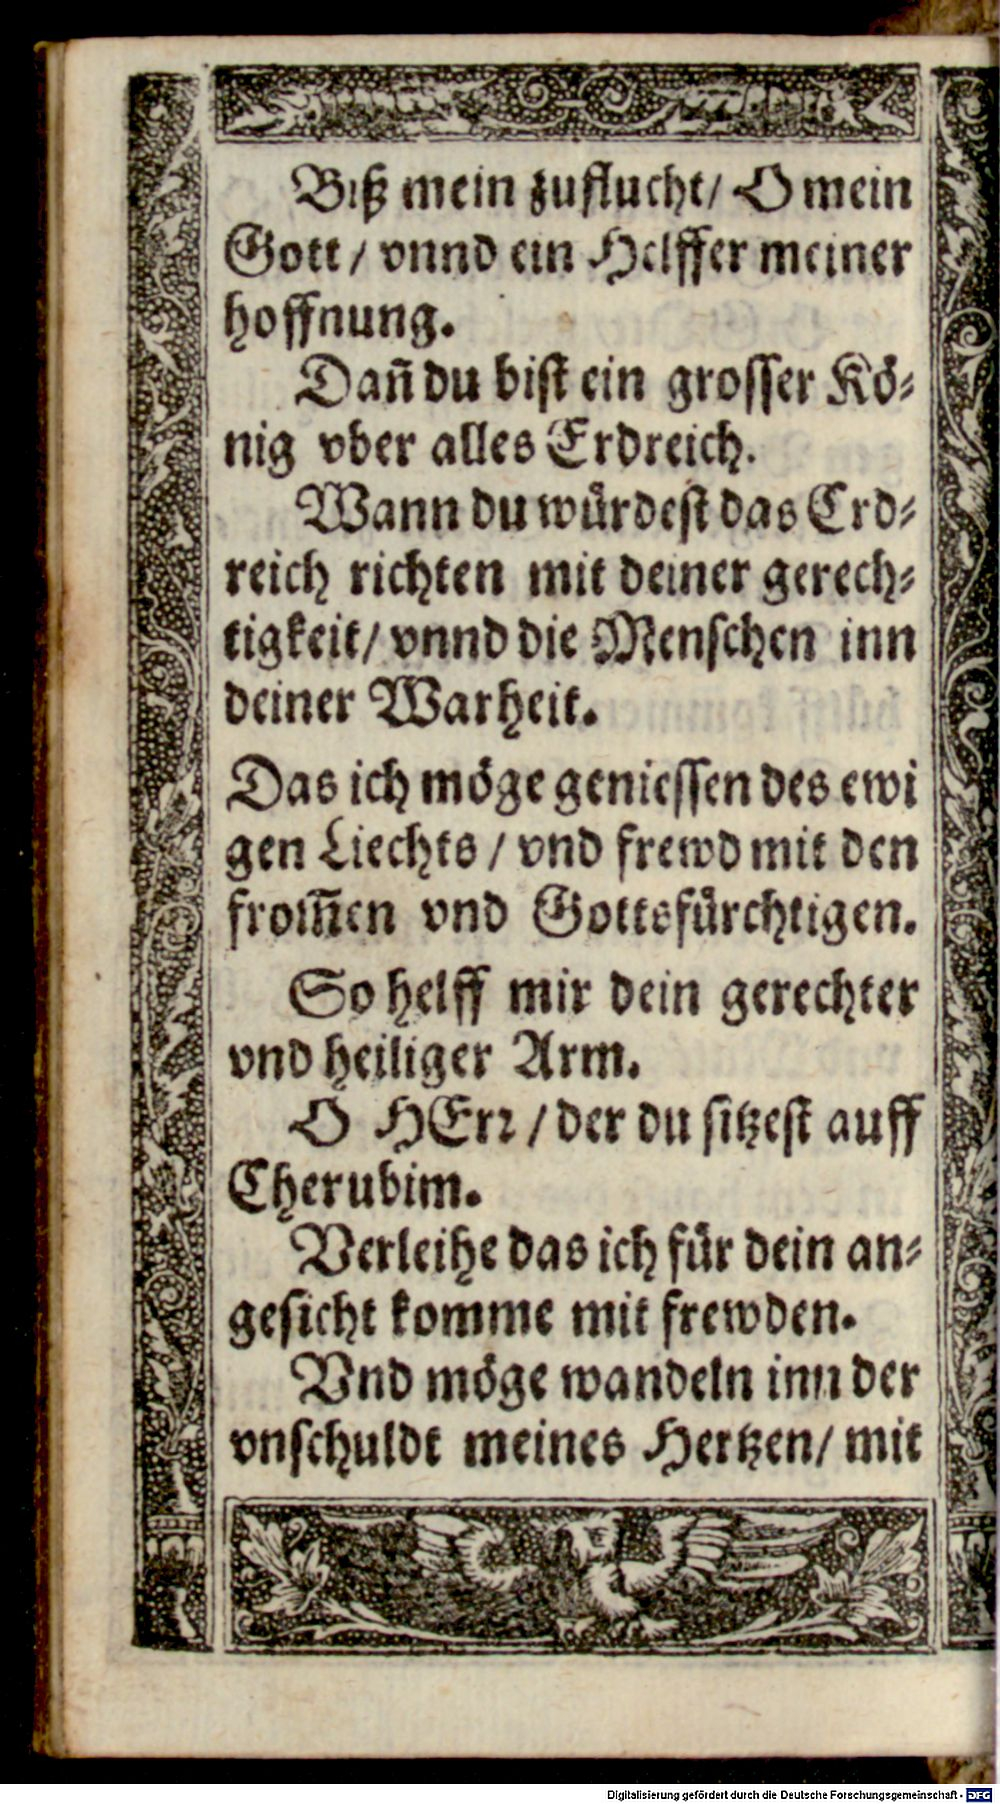 Biß mein zuflucht/ O mein
Gott/ vnnd ein Helffer meiner
hoffnung.
Dañ du bist ein grosser Kö⸗
nig vber alles Erdreich.
Wann du würdest das Erd⸗
reich richten mit deiner gerech⸗
tigkeit/ vnnd die Menschen inn
deiner Warheit.
Das ich möge geniessen des ewi
gen Liechts/ vnd frewd mit den
from̃en vnd Gottsfürchtigen.
So helff mir dein gerechter
vnd heiliger Arm.
O HErr/ der du sitzest auff
Cherubim.
Verleihe das ich für dein an⸗
gesicht komme mit frewden.
Vnd möge wandeln inn der
vnschuldt meines Hertzen/ mit
Digitalisierung gefördert durch die Deutsche Forschungsgemeinschaft - DFG